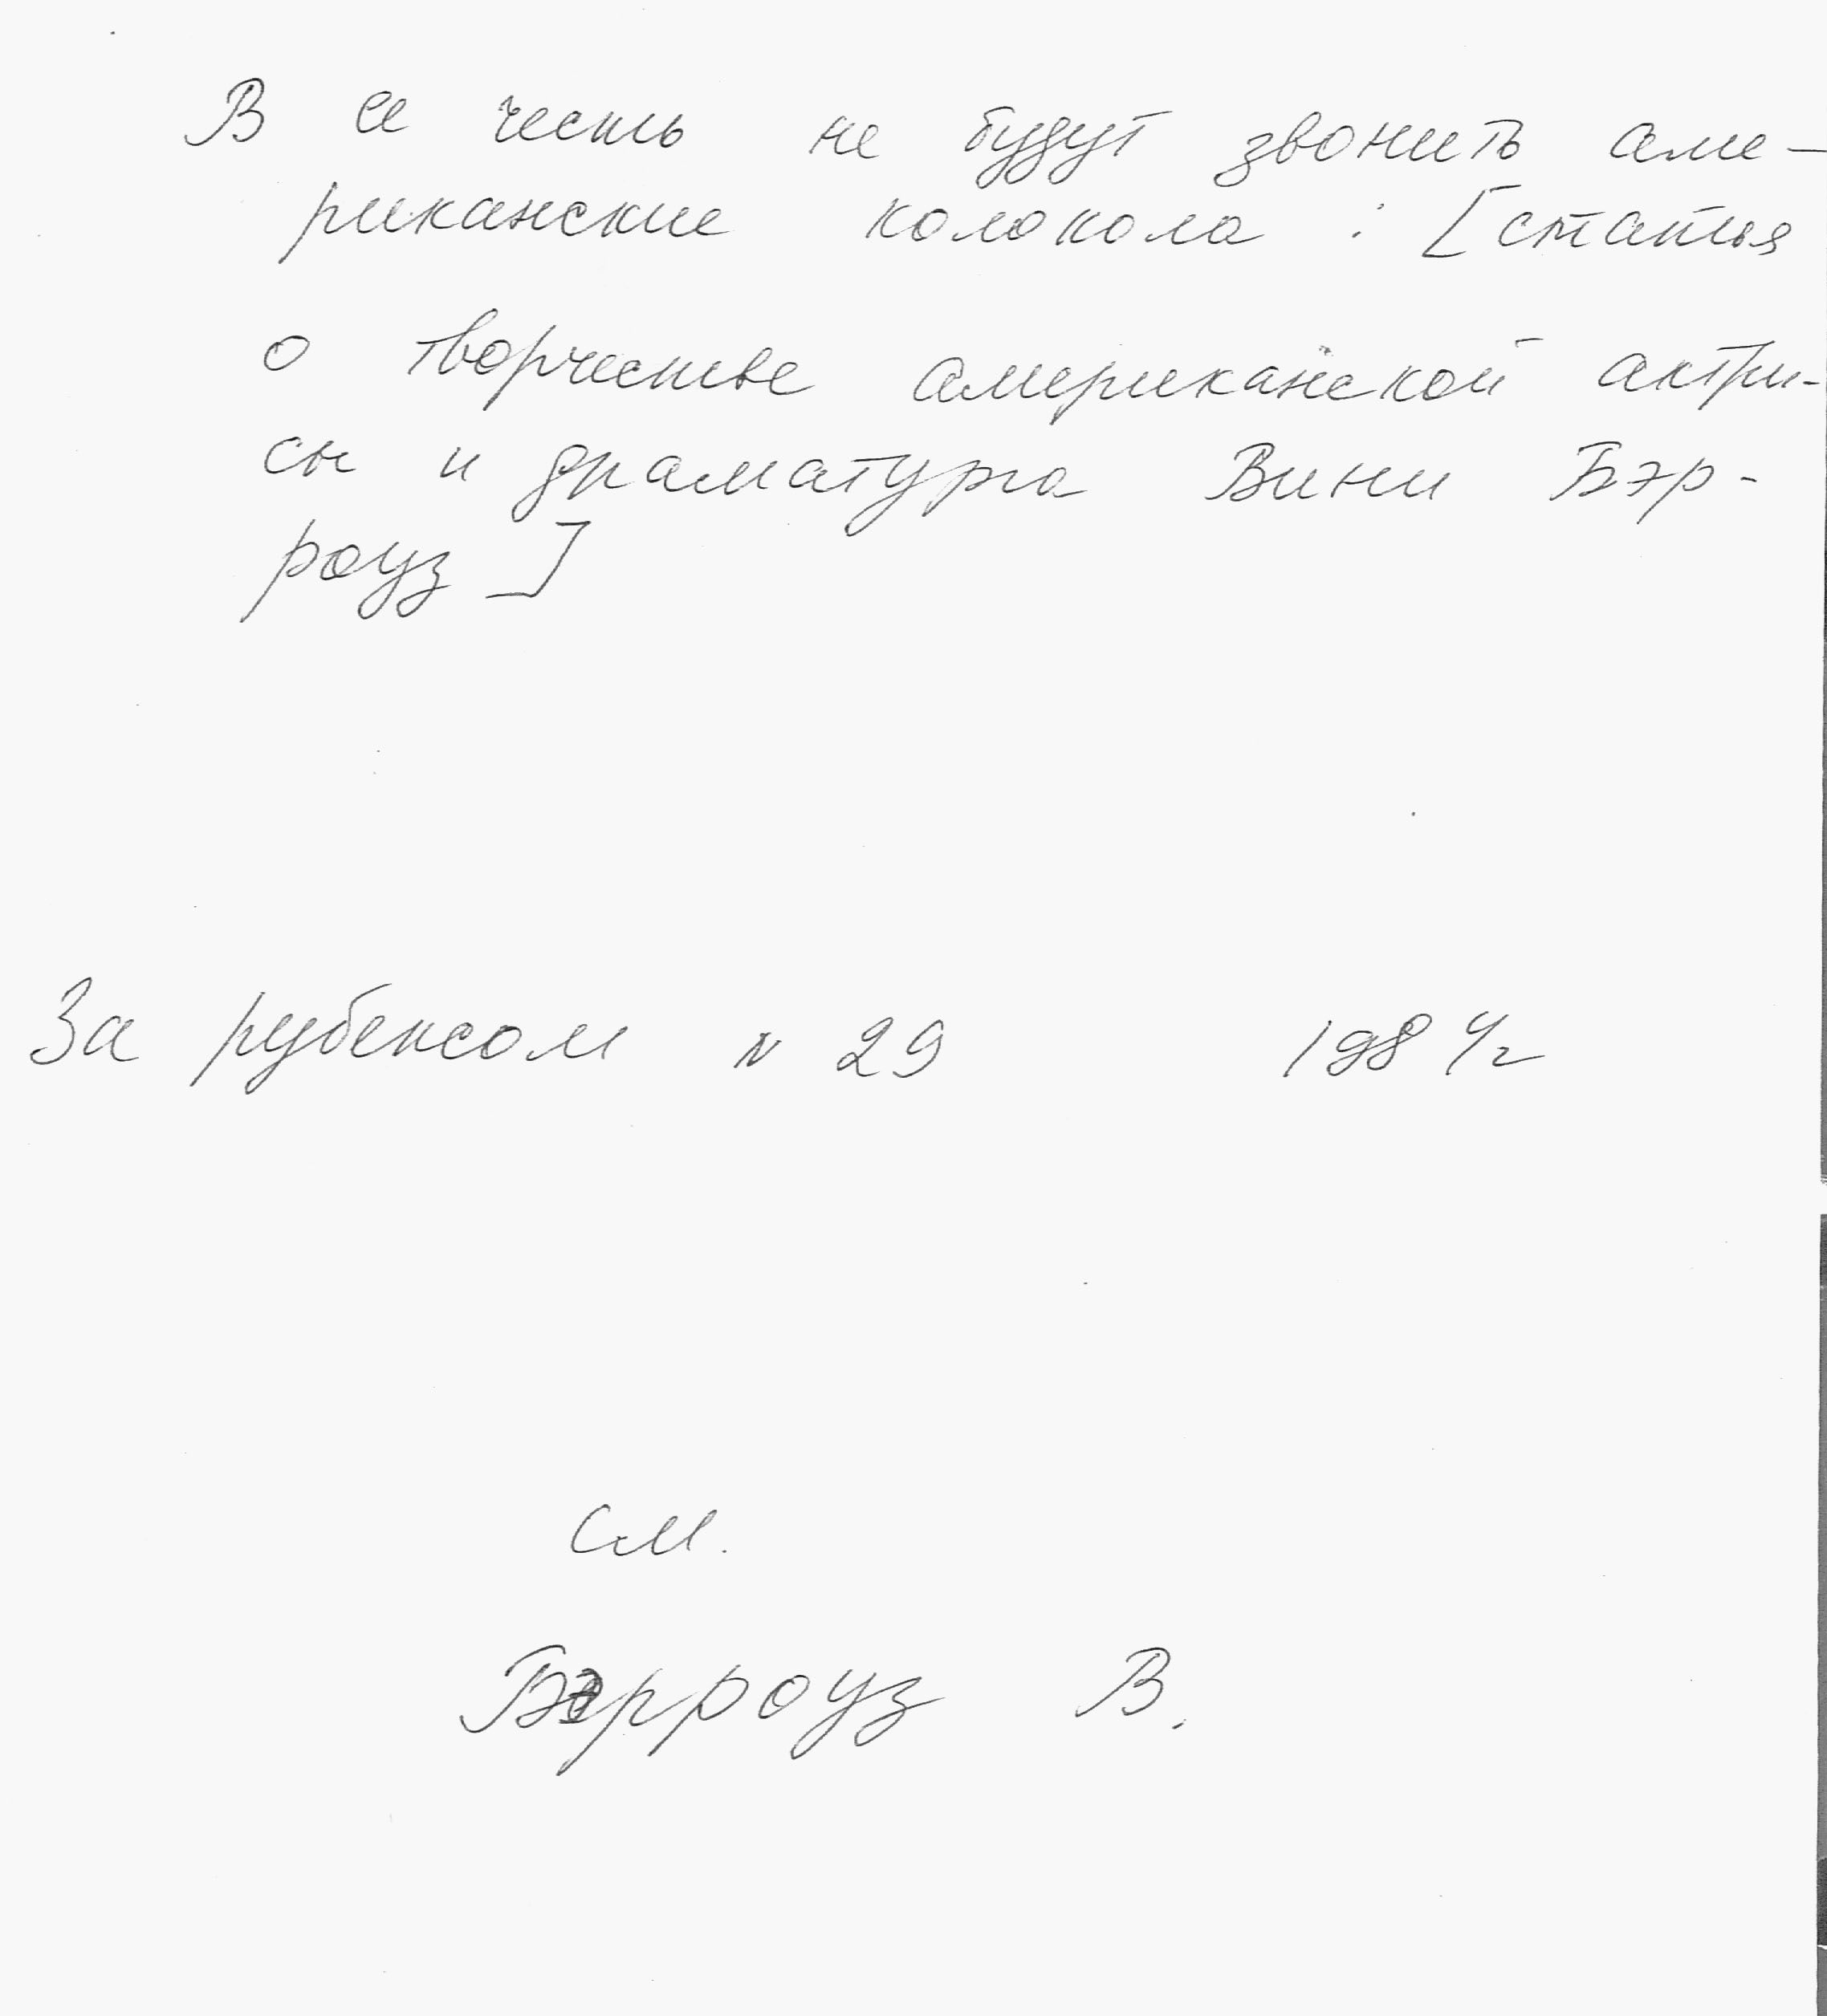 В ее честь не будут звонить аме-
риканские колокола : [статья
о творчестве американской актри-
сы и драматурга Вини Бэр-
роуз]
За рубежом № 29 1984г
См.
Бэрроуз В.